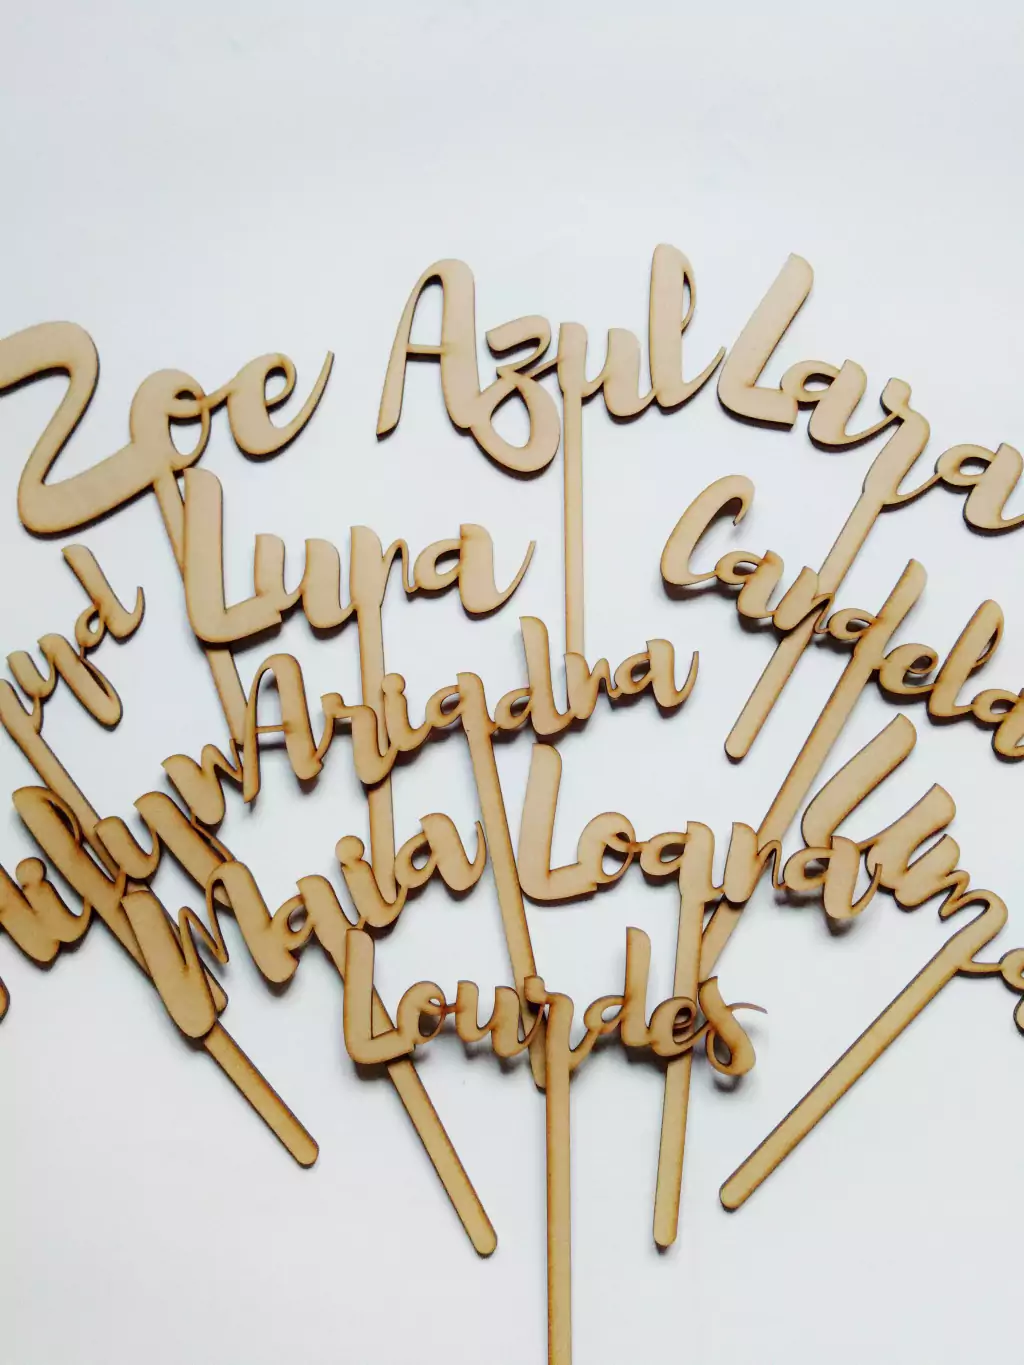 Zoe
Azul
Lara
Luna
Candela
Ariadna
Maia
Loana
Lourdes